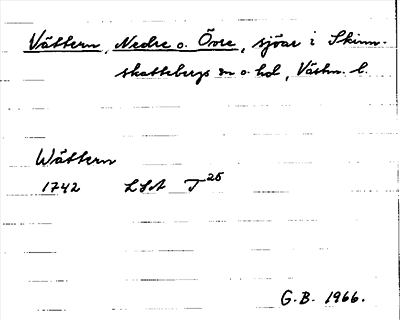 Vättern, Nedre o. Övre, sjöar i Skinn-
skattebergs sn o. hd, Västm. l.
Wättern
1742 LSA T 25
G.B. 1966.